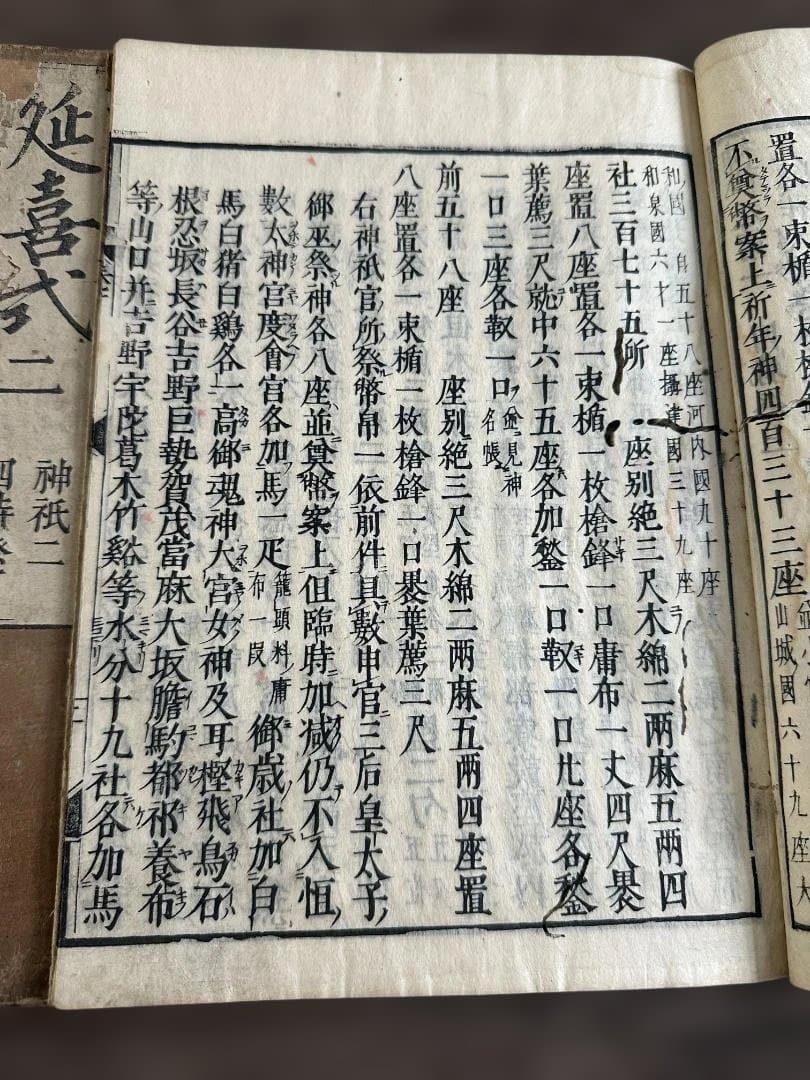 置各一束楯一枚槍鋒
不奠幣案上祈年神四百三十三座
山城國六十九座大
百五十八座河内國九十座
和泉國六十一座攝津國三十九座
社三百七十五所　座別絁三尺木綿二兩麻五兩四
座置八座置各一束楯一枚槍鋒一口庸布一丈四尺裹
葉薦三尺就中六十五座各加鍬一口靫一口廿八座各鍬
一口三座各靫一口並見神名帳
前五十八座　座別絁三尺木綿二兩麻五兩四座置
八座置各一束楯一枚槍鋒一口裹葉薦三尺
右神祇官所祭幣帛一依前件具數申官三后皇太子
御巫祭神各八座並奠幣案上但臨時加減仍不入恒
數太神宮度會宮各加馬一疋籠頭料庸布一段御歳社加白
馬白猪白鷄各一高御魂神大宮女神及耳樫飛鳥石
根忍坂長谷吉野巨勢賀茂當麻大坂膽駒都祁養布
等山口并吉野宇陀葛木竹谿等水分十九社各加馬
延喜式　二
神祇二
四時祭